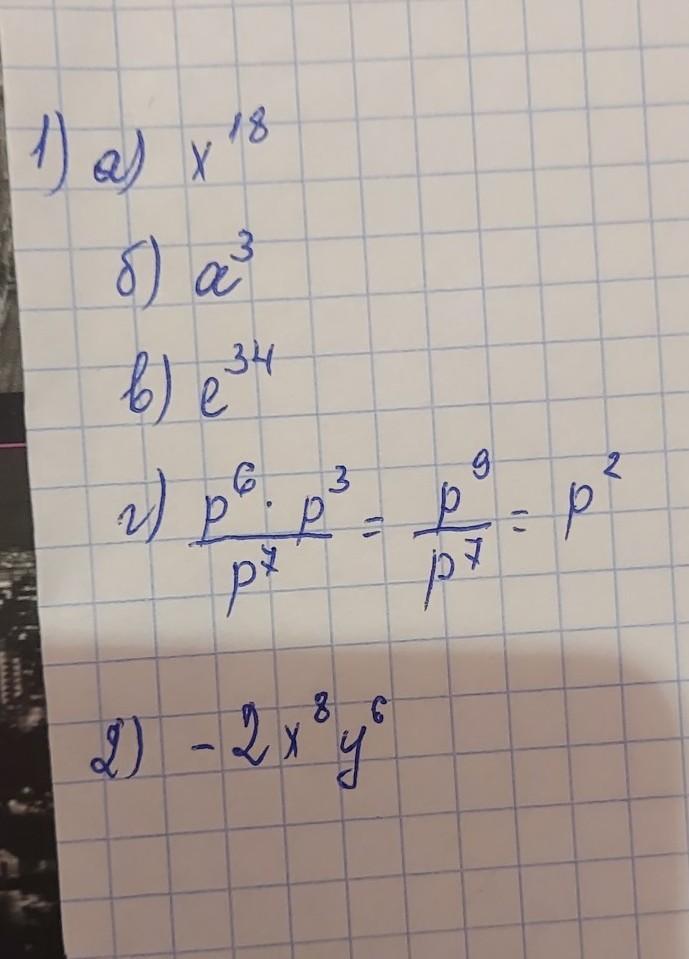 1) а) x^18
б) a^3
в) e^34
г) (p^6 · p^3)/p^7 = p^9/p^7 = p^2
2) - 2x^8y^6